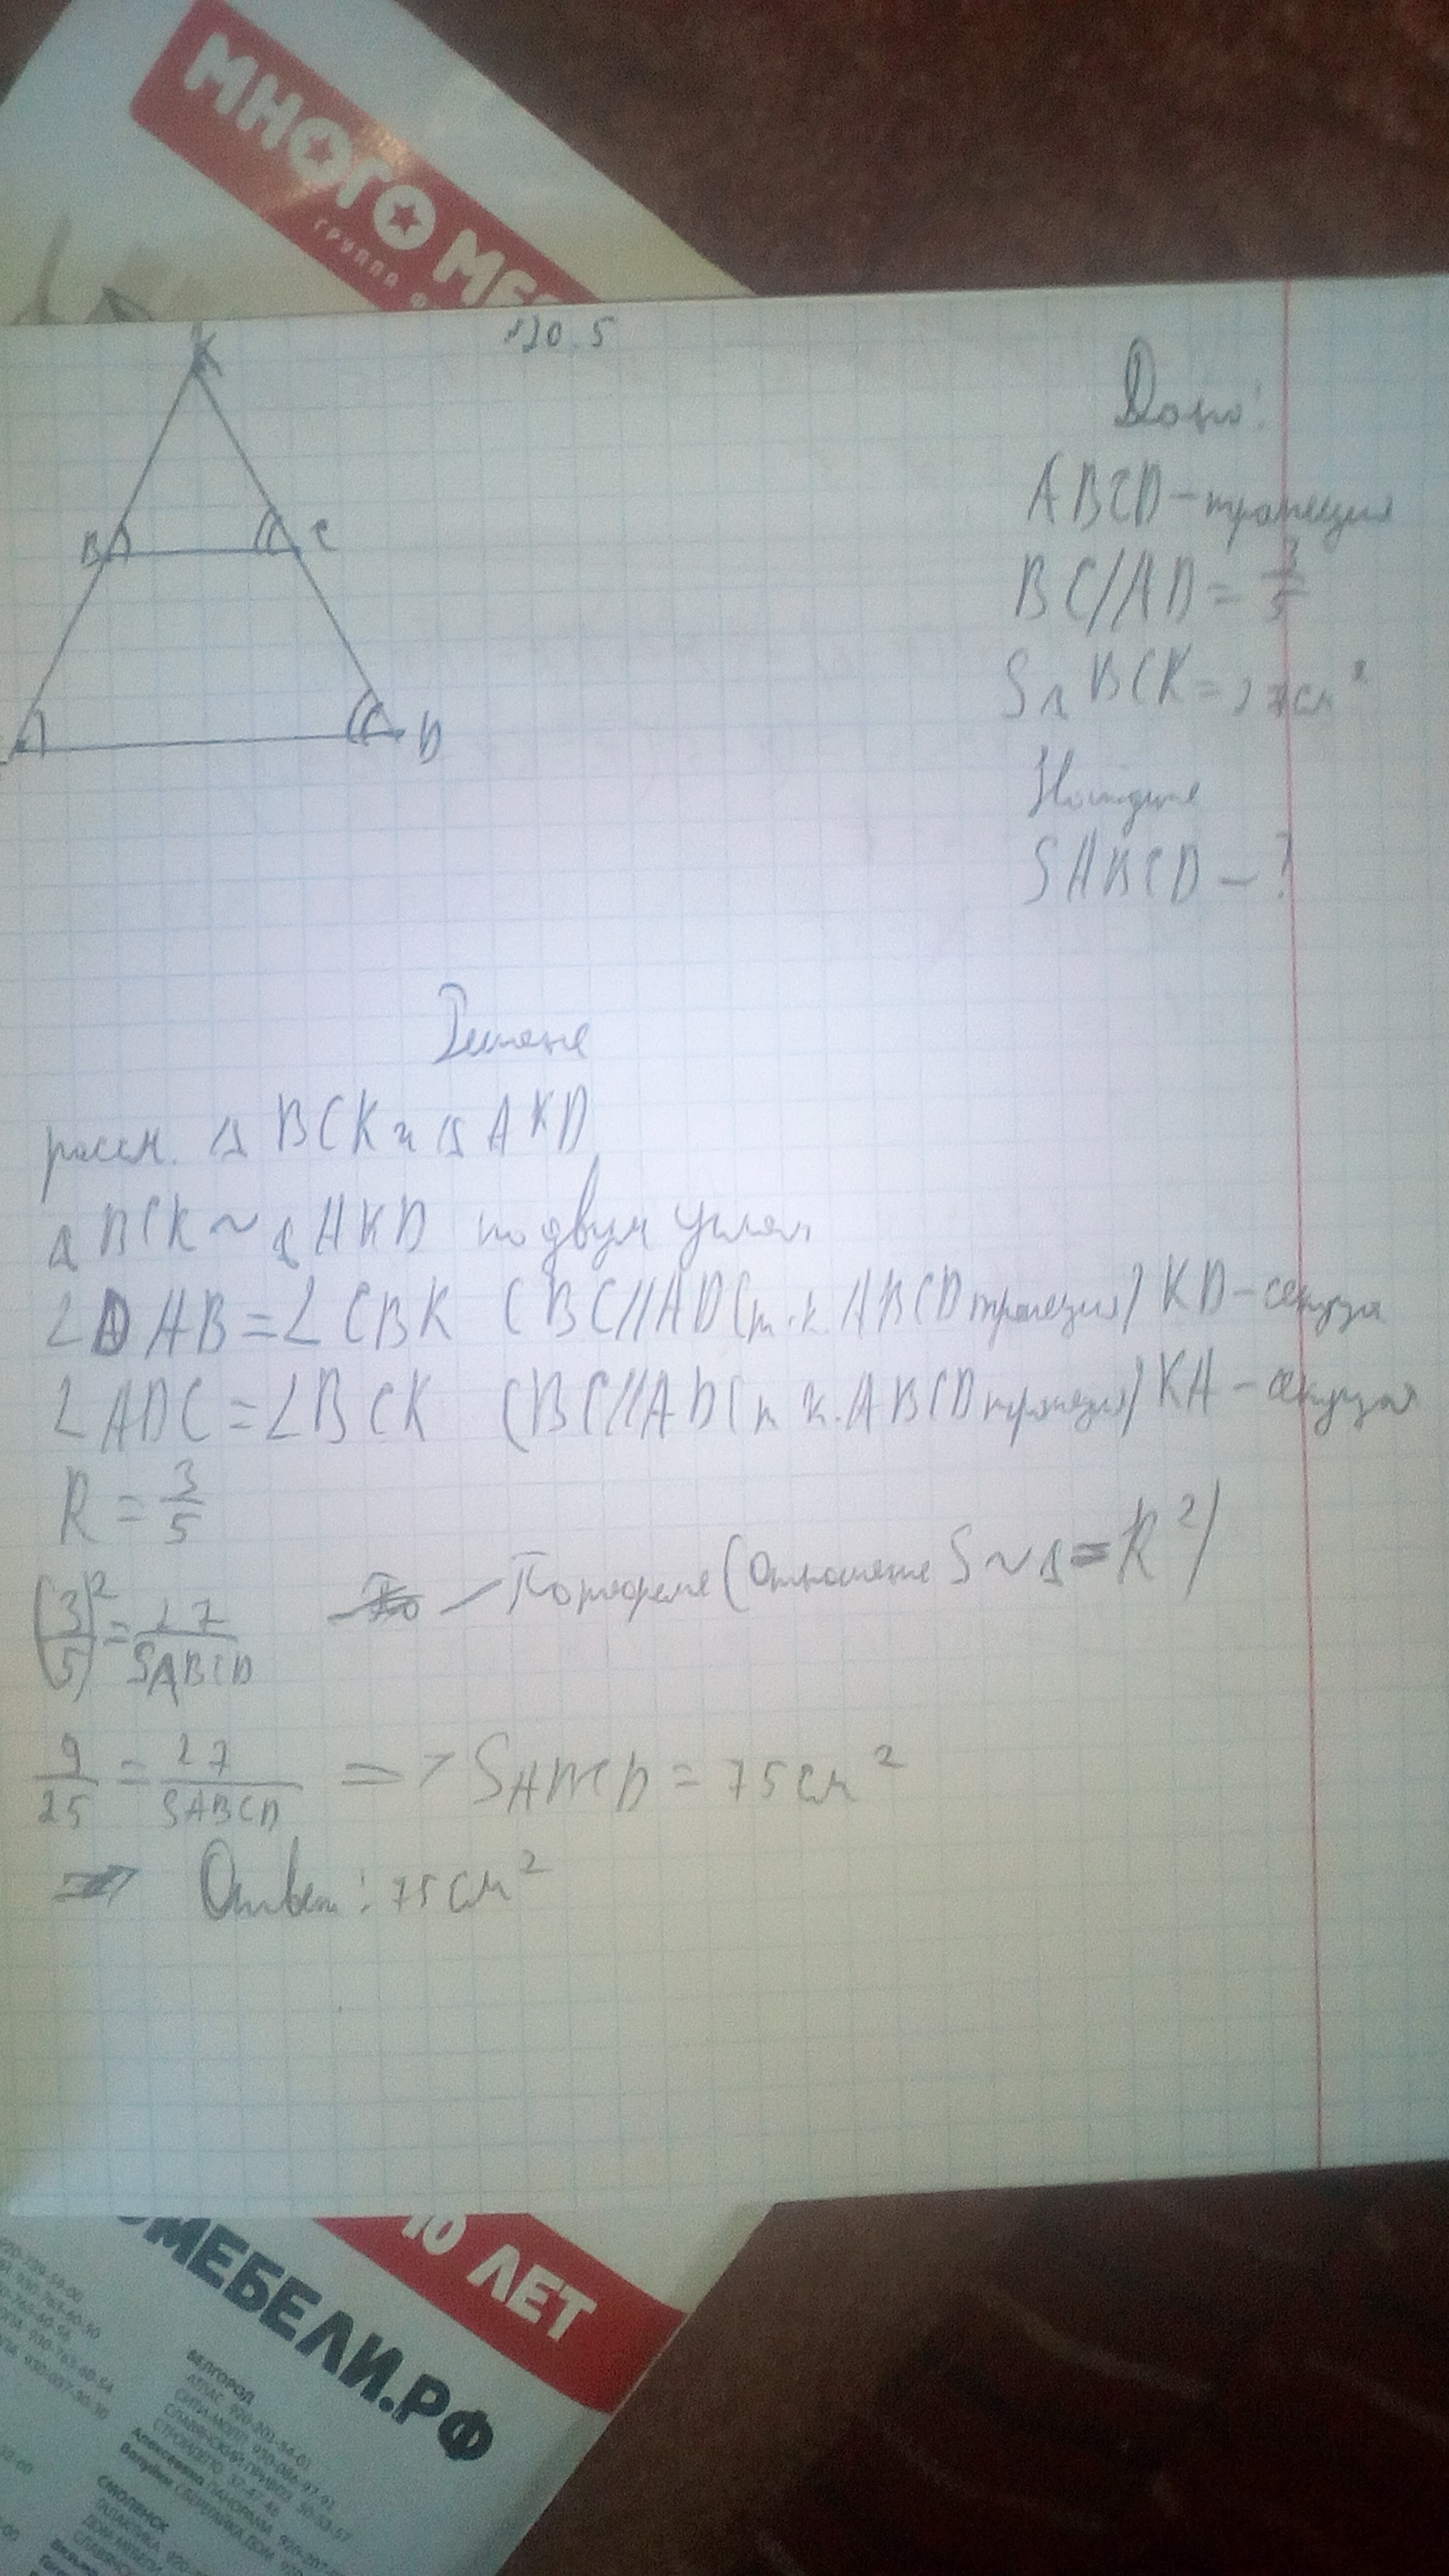 МНОГО МЕ
ГРУППА Ф
№20.5
K
B
C
D
Дано:
ABCD - трапеция
BC//AD = 3/5
S△BCK = 27см²
Найдите
SABCD - ?
Решение
рассм. △ BCK и △ AKD
△ BCK ~ △ AKD по двум углам
∠DAB = ∠CBK (BC//AD (т.к. ABCD трапеция) KD - секущая
∠ADC = ∠BCK (BC//AD (т.к. ABCD трапеция) KA - секущая
R = 3/5
(3/5)² = 27/SABCD - По теореме (Отношение S ~ △ = R²)
9/25 = 27/SABCD => SABCD = 75см²
Ответ: 75см²
10 ЛЕТ
МЕБЕЛИ.РФ
БЕЛГОРОД
АТЛАС 920-201-54-01
СИТИ-МОЛЛ 930-086-97-92
СМОЛЕНСК